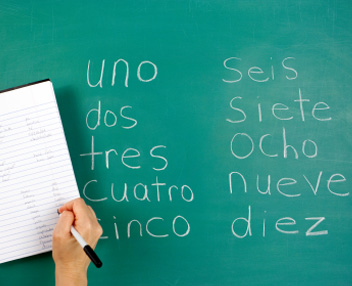 uno
dos
tres
cuatro
cinco
seis
siete
ocho
nueve
diez